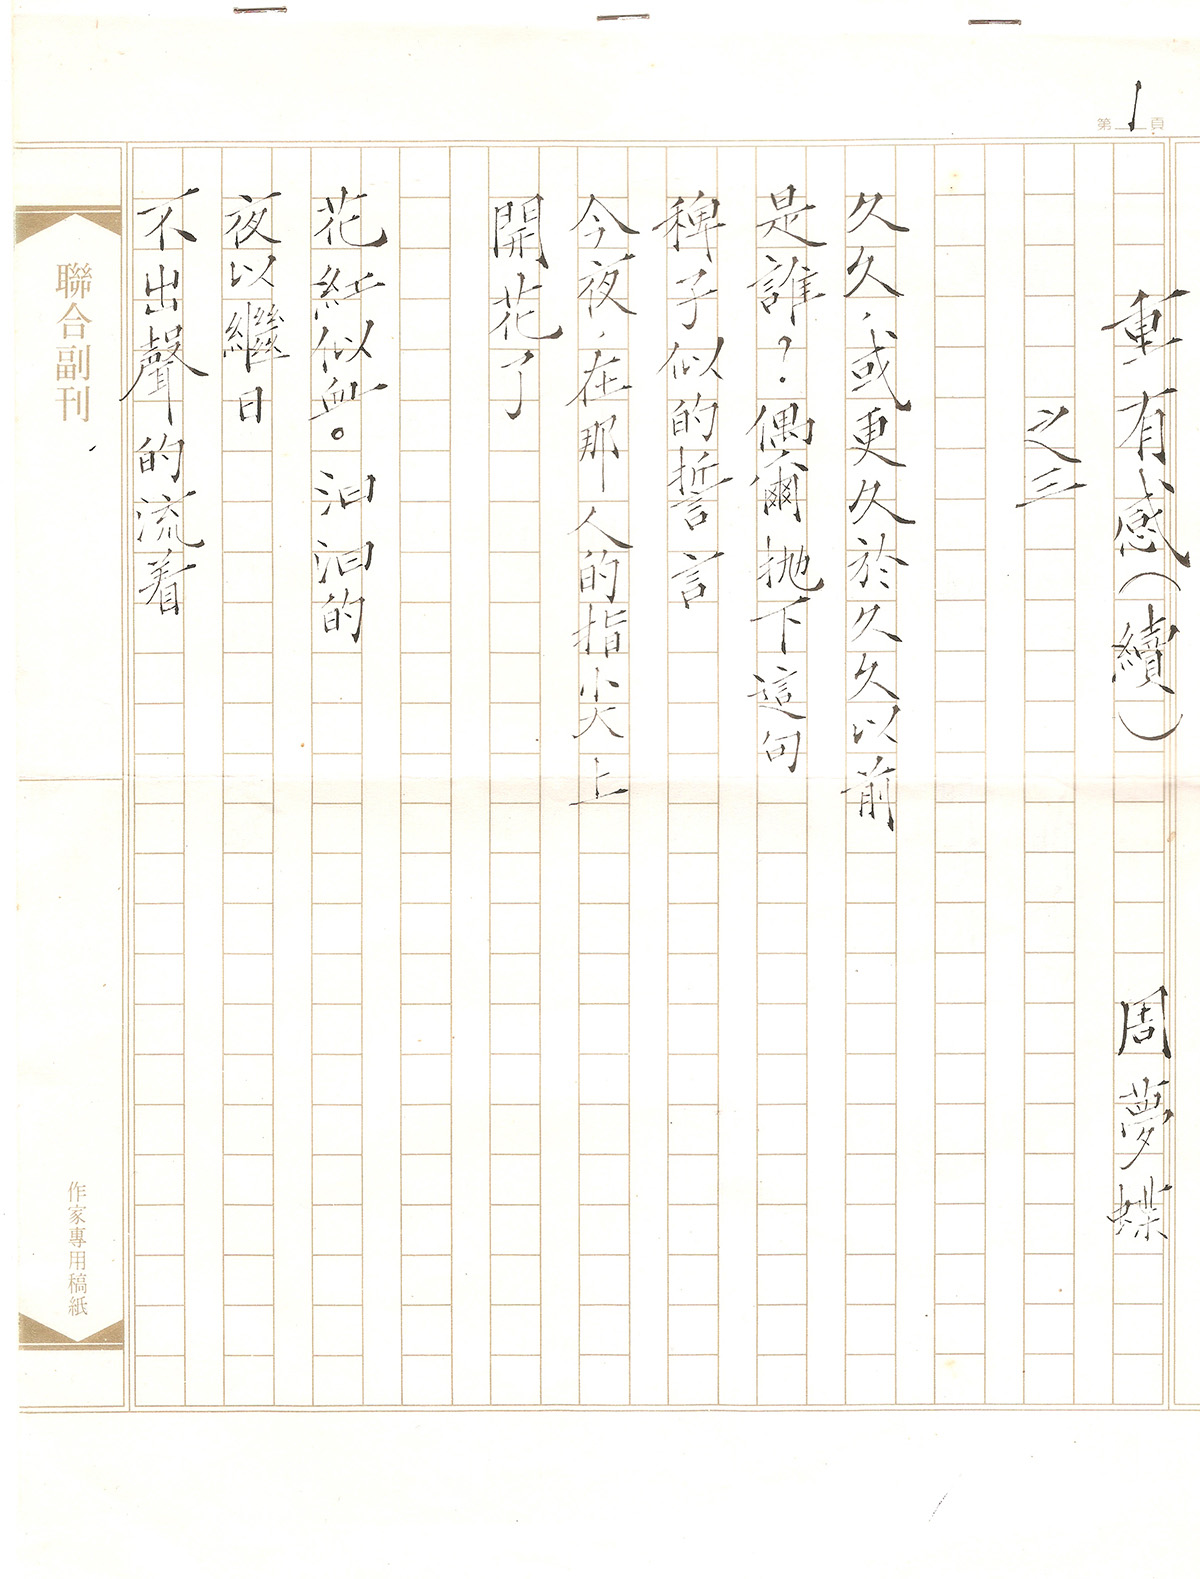 第1頁
重有感(續) 周夢蝶
之三
久久,或更久於久久以前
是誰?偶爾拋下這句
稗子似的誓言
今夜,在那人的指尖上
開花了
花紅似血。汩汩的
夜以繼日
不出聲的流着
聯合副刊
作家專用稿紙